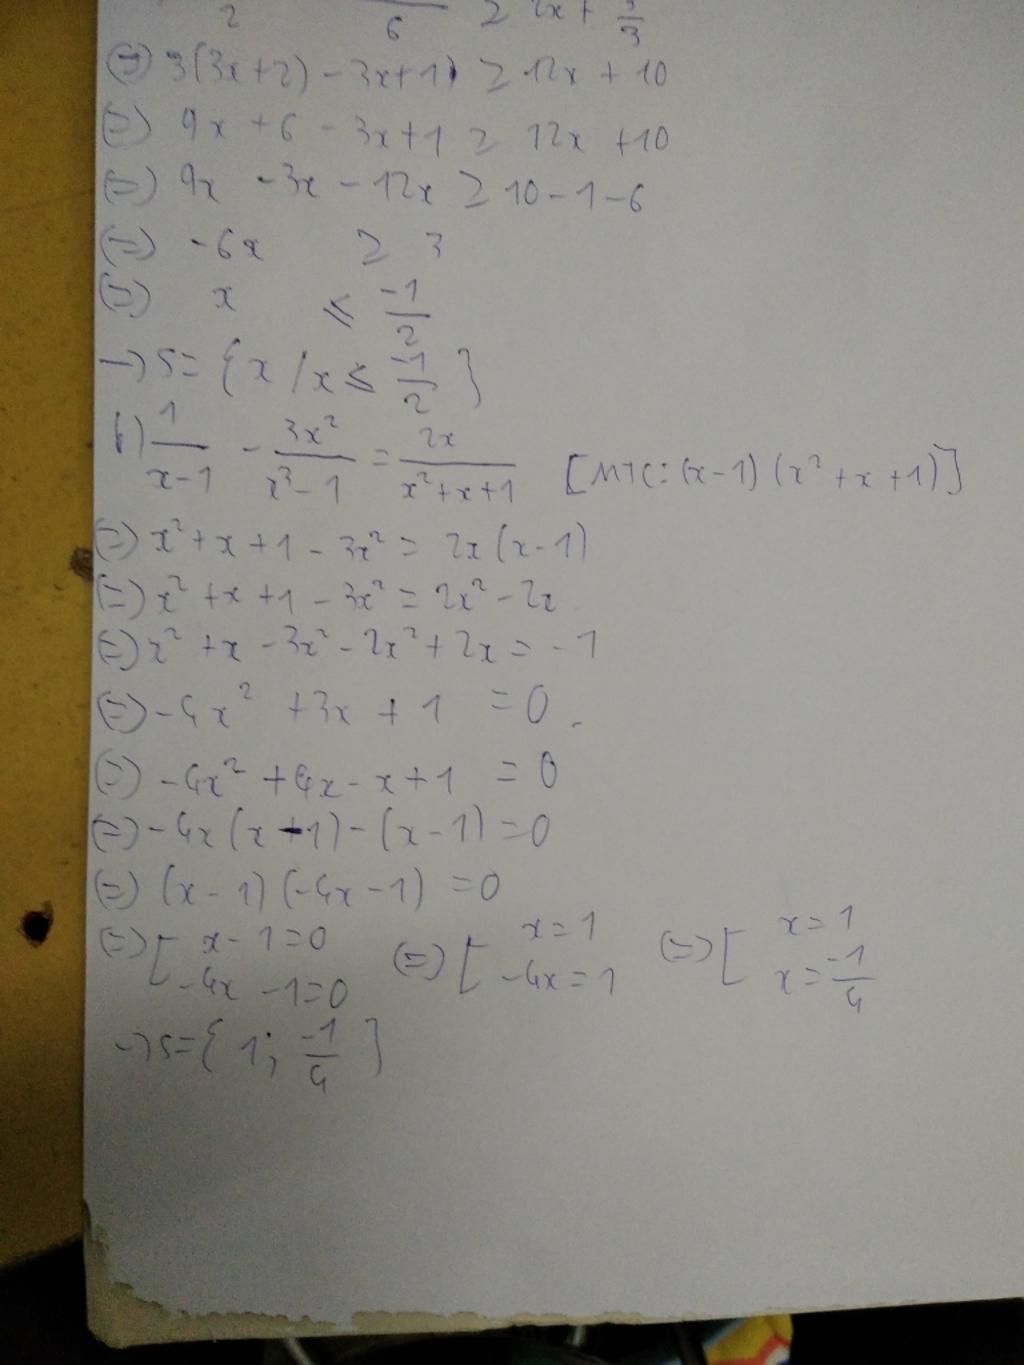 2 6 ≥ 2x + 5/3
⇔ 3(3x+2) - 3x+1) ≥ 12x + 10
⇔ 9x + 6 - 3x + 1 ≥ 12x + 10
⇔ 9x - 3x - 12x ≥ 10 - 1 - 6
⇔ -6x ≥ 3
⇔ x ≤ -1/2
→ S = { x / x ≤ -1/2 }
b) 1/(x-1) - 3x²/(x³-1) = 2x/(x²+x+1) [MTC: (x-1)(x²+x+1)]
⇔ x² + x + 1 - 3x² = 2x(x-1)
⇔ x² + x + 1 - 3x² = 2x² - 2x
⇔ x² + x - 3x² - 2x² + 2x = -1
⇔ -4x² + 3x + 1 = 0.
⇔ -4x² + 4x - x + 1 = 0
⇔ -4x(x-1) - (x-1) = 0
⇔ (x-1)(-4x-1) = 0
⇔ [ x-1=0 ⇔ [ x=1 ⇔ [ x=1
-4x-1=0 -4x=1 x=-1/4
→ S = { 1; -1/4 }